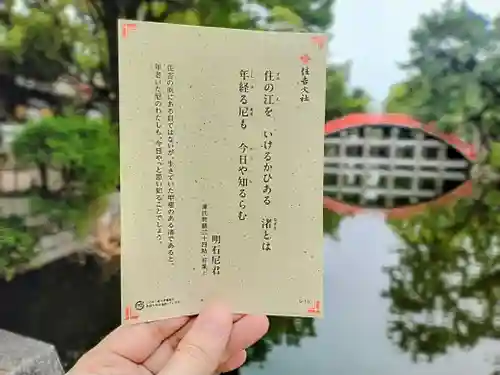 住吉大社
住の江を いけるかひある 渚とは
年経る尼も 今日や知るらむ
明石尼君
源氏物語三十四帖「若菜上」
住吉の浜にある貝ではないが、生きていた甲斐のある渚であると、
年老いた尼のわたしも、今日やっと思い知ることでしょう。